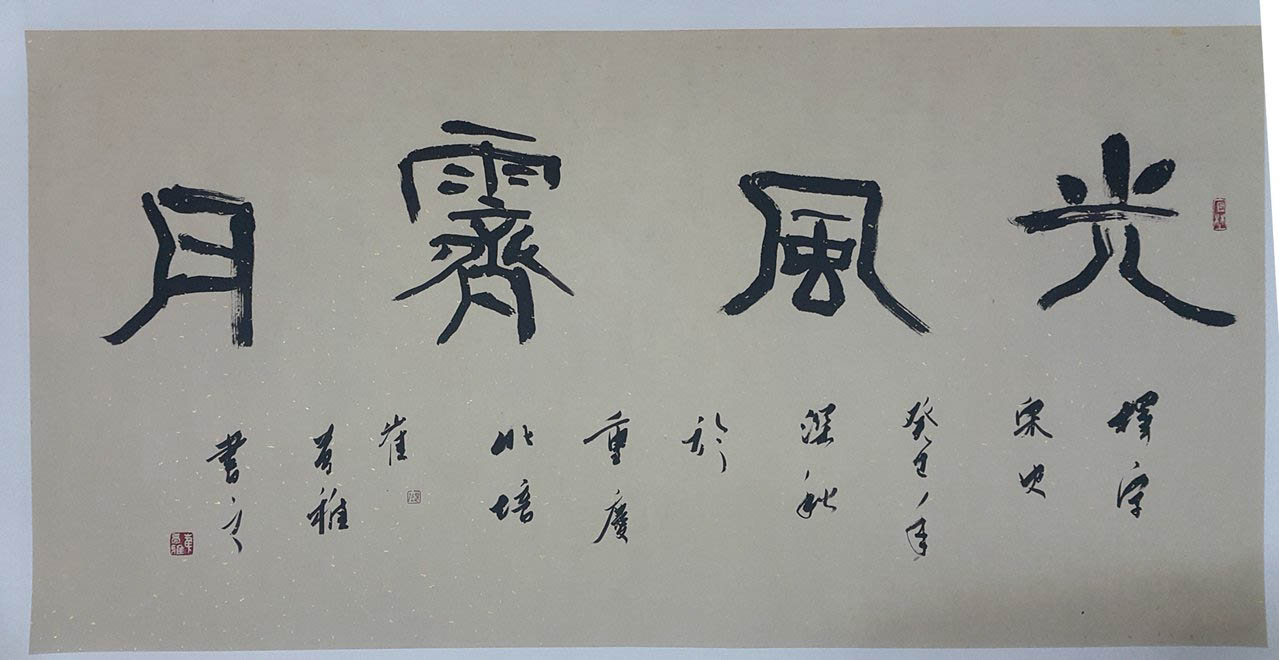 光風霽月
擇字
宋史
癸巳年
深秋
於
重慶
北培
崔
書之